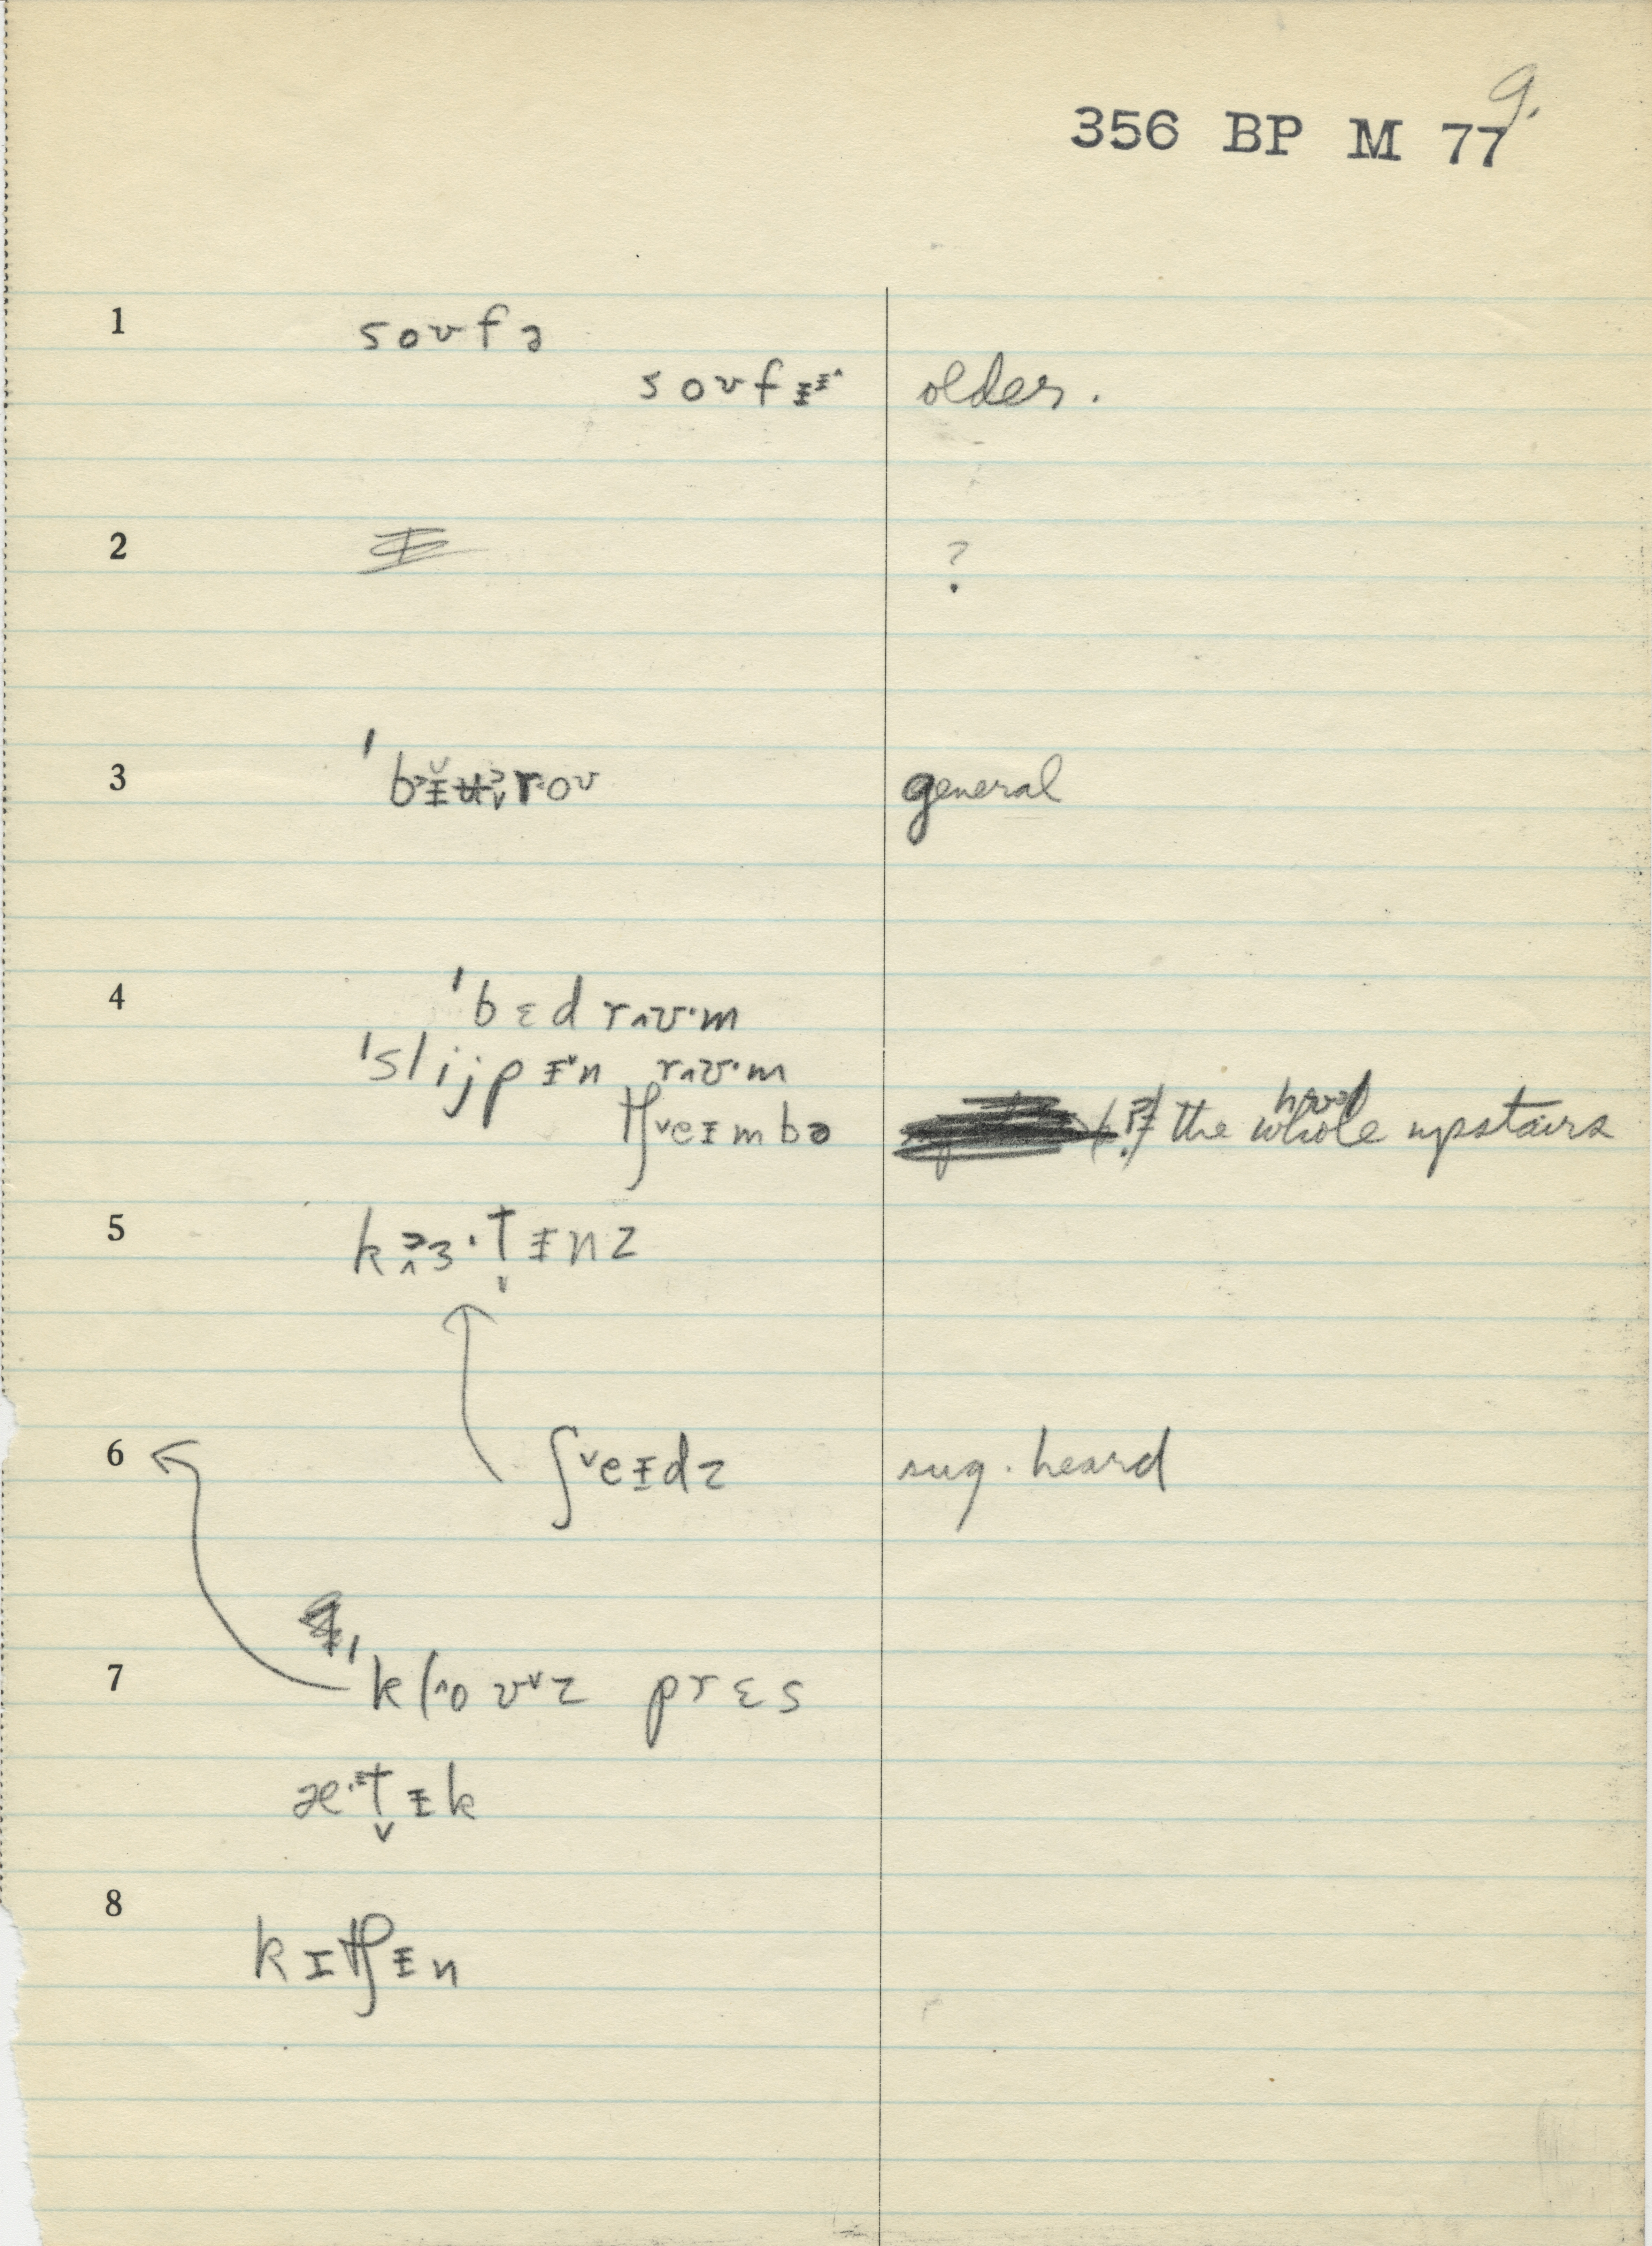 9.
356 BP M 77
1 soʊfə
soʊfɪ̵ɪ̵^ older.
2 ?
3 ˈbɪ̵ʉroʊ general
4 ˈbɛdr^ʊ·m
ˈslijpɪ̵ˇn r^ʊ·m
tʃˇeɪmbə (?) the whole upstairs
5 kɜ·t̬ɪ̵nz
6 ʃˇeɪ̵dz sug. heard
7 ˈkl^oʊˇz prɛs
æ·t̬ɪ̵k
8 kɪtʃɪ̵n